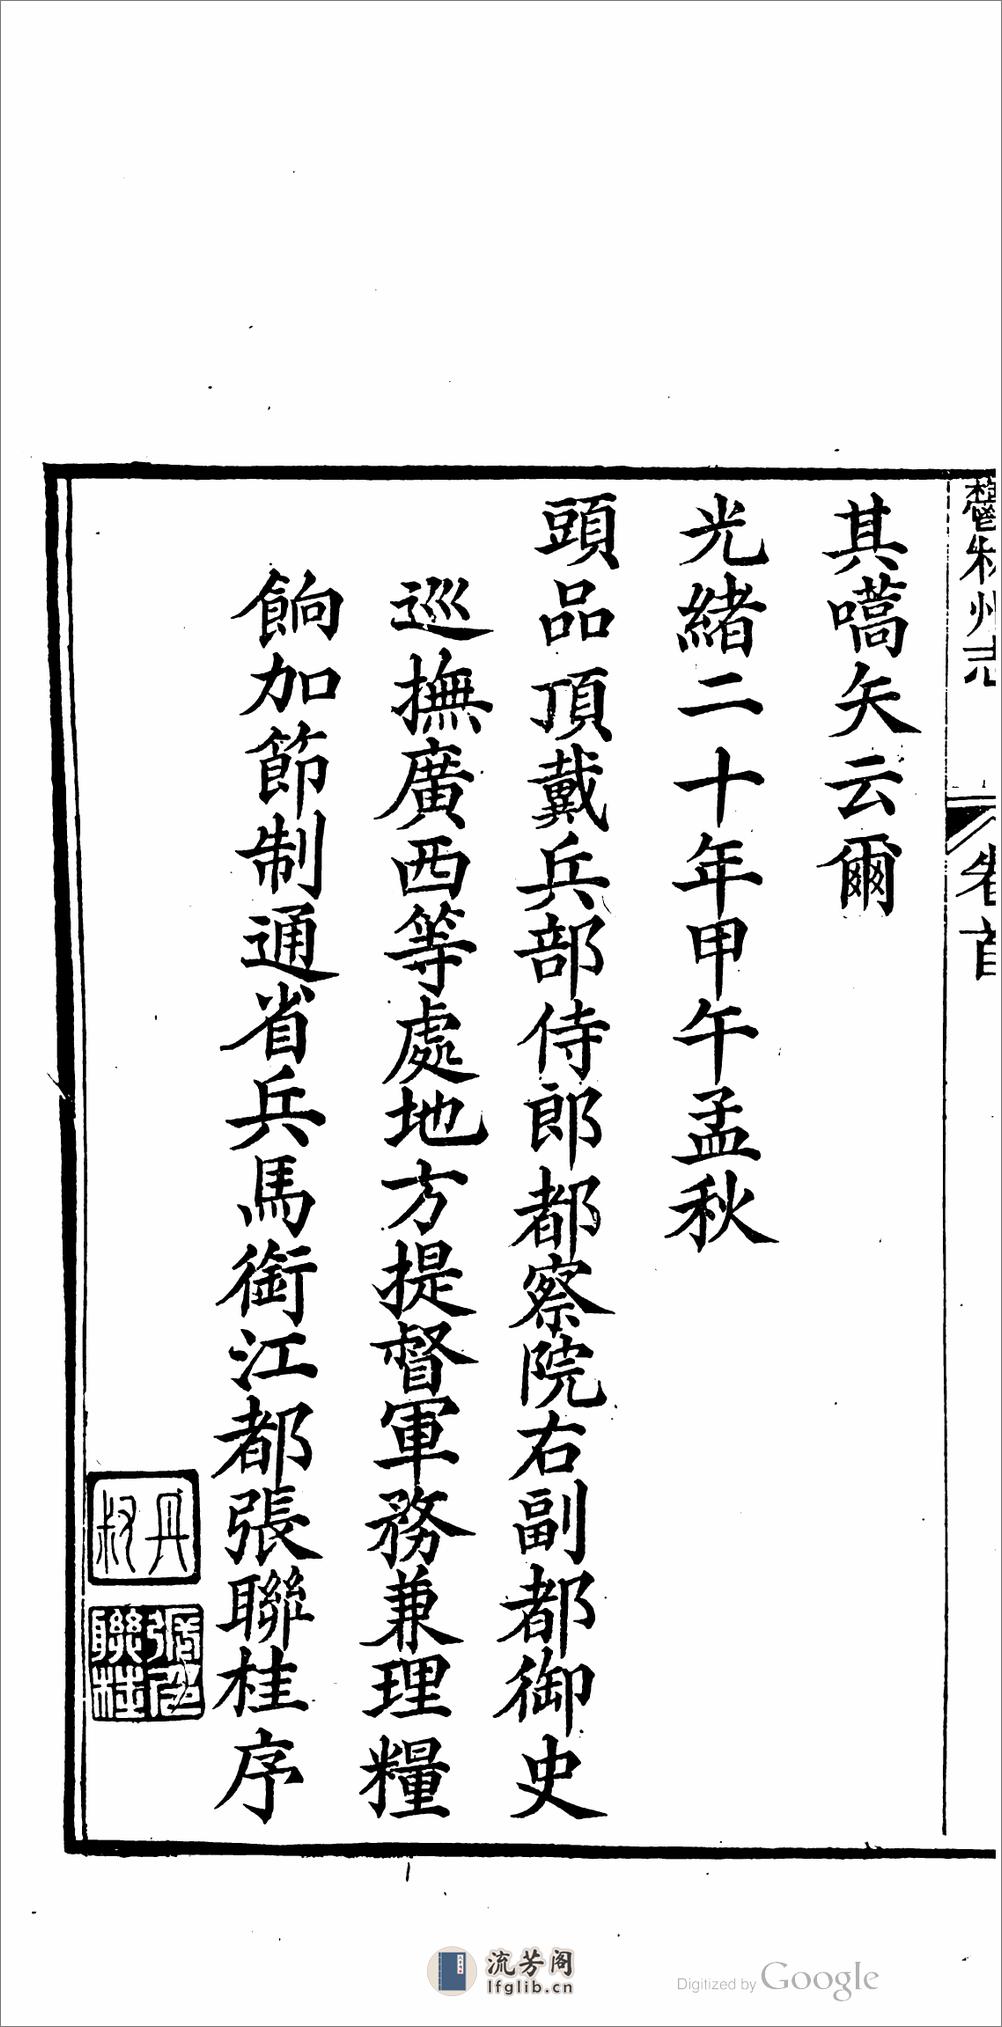 鬱林州志
卷首
其嚆矢云爾
光緒二十年甲午孟秋
頭品頂戴兵部侍郎都察院右副都御史
巡撫廣西等處地方提督軍務兼理糧
餉加節制通省兵馬銜江都張聯桂序
丹叔
張聯桂印
流芳阁
lfglib.cn
Digitized by Google